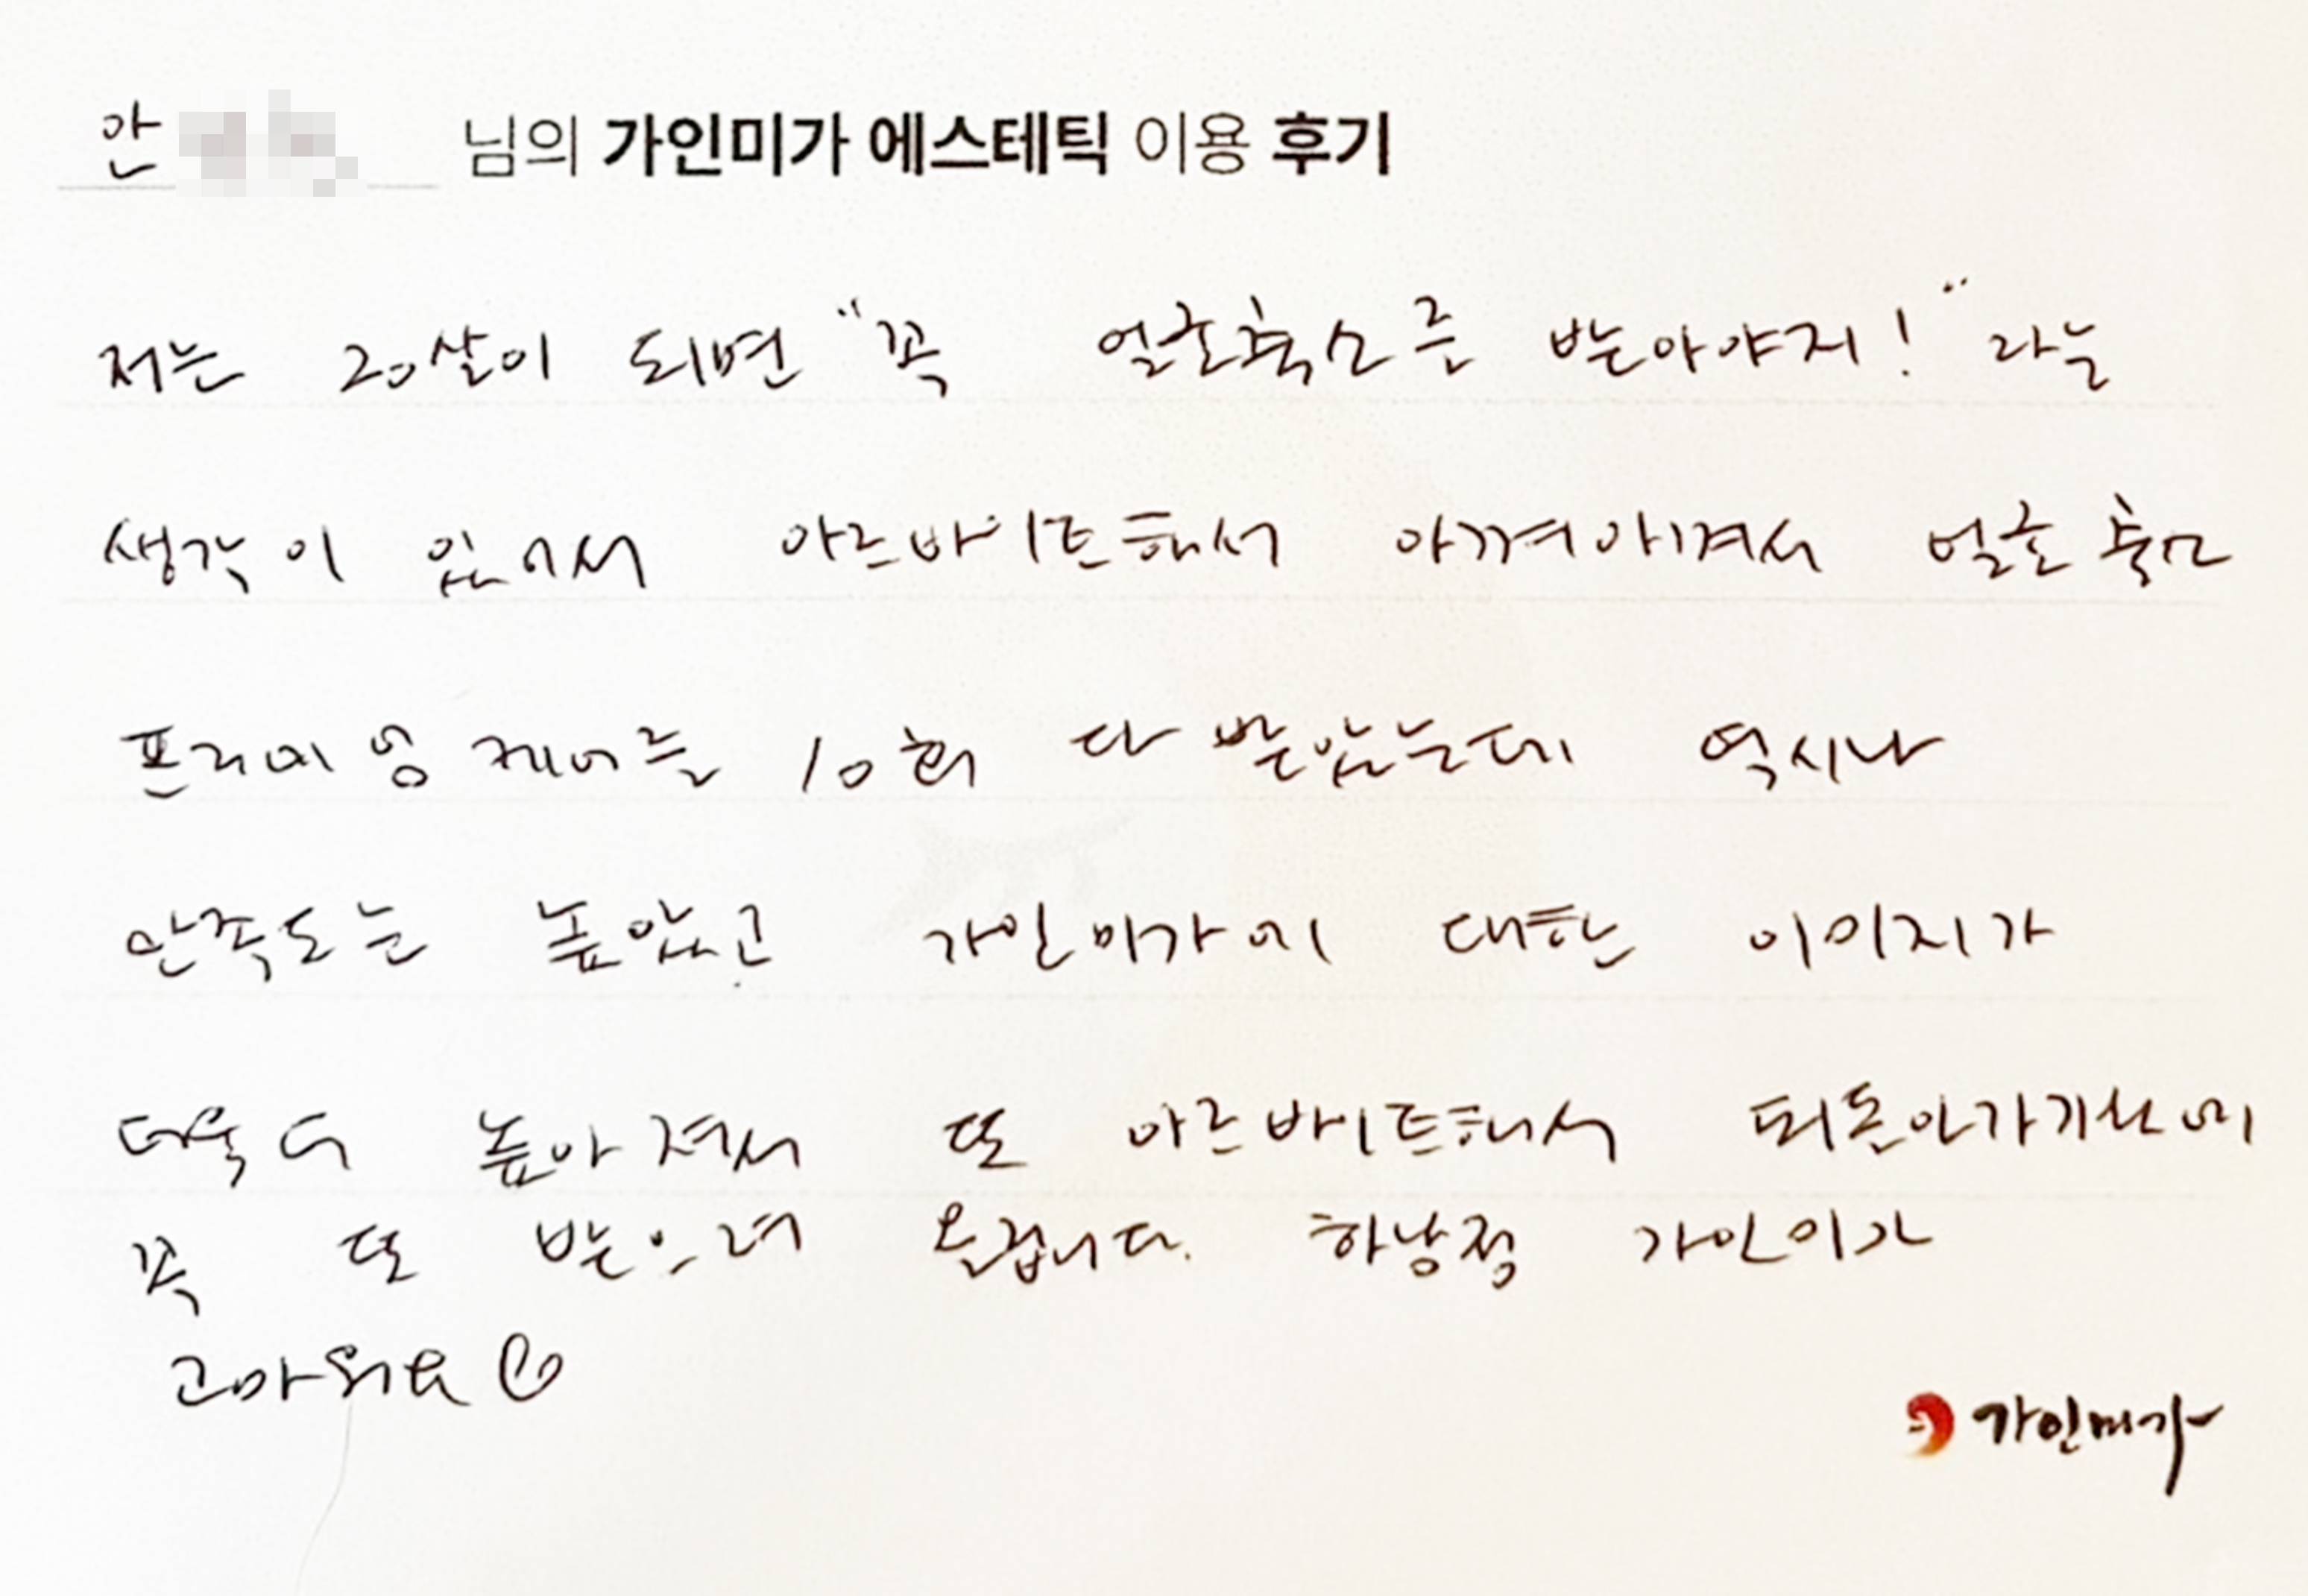 안 님의 가인미가 에스테틱 이용 후기
저는 20살이 되면 "꼭 얼굴축소를 받아야지!" 라는
생각이 있어서 아르바이트해서 아껴아껴서 얼굴축소
프리미엄 케어를 10회 다 받았는데 역시나
만족도는 높았고 가인미가에 대한 이미지가
더욱 더 높아져서 또 아르바이트해서
꼭 또 받으러 올겁니다. 하남점 가인미가
고마워요
가인미가